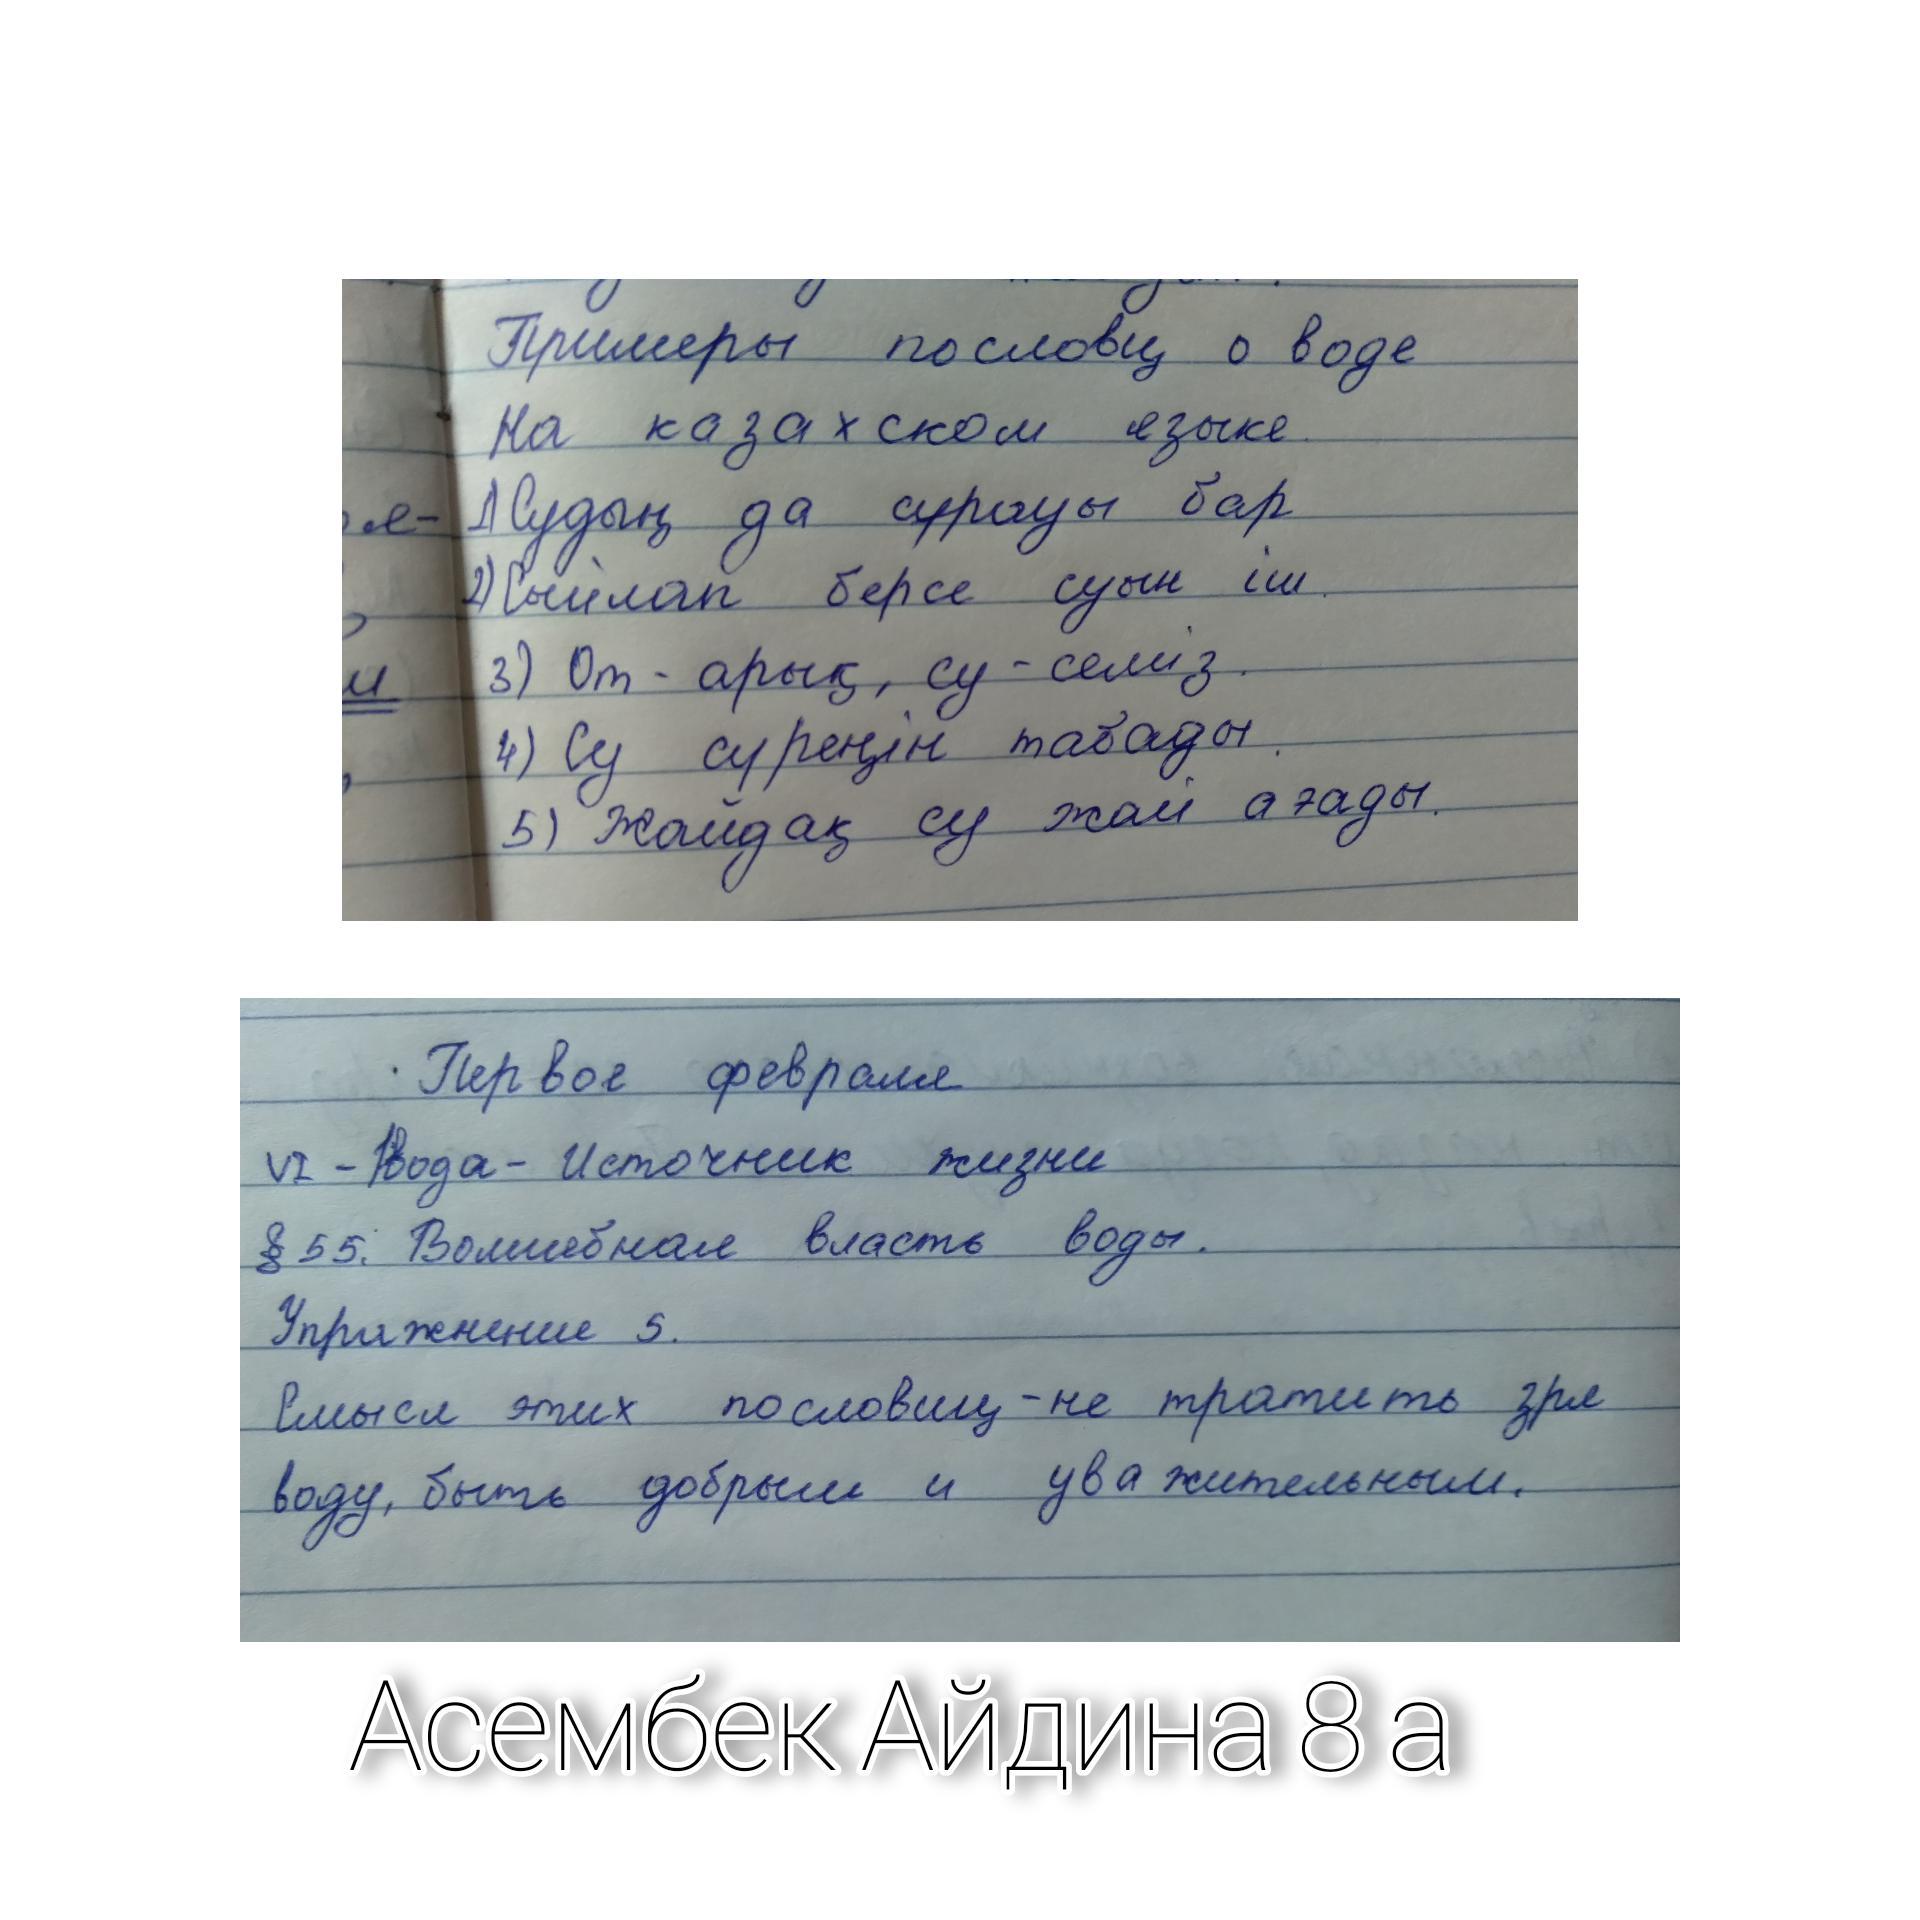 Примеры пословиц о воде
На казахском языке.
1) Судың да сұрауы бар
2) Сыйлап берсе суын іш.
ля-
3) От - арық, су - семіз.
и
4) Су суреңін табады.
5) Жайдақ су жай ағады.
Первое февраля
VI - Вода - Источник жизни
§ 55. Волшебная власть воды.
Упражнение 5.
Смысл этих пословиц - не тратить зря
воду, быть добрым и уважительным.
Асембек Айдина 8 а